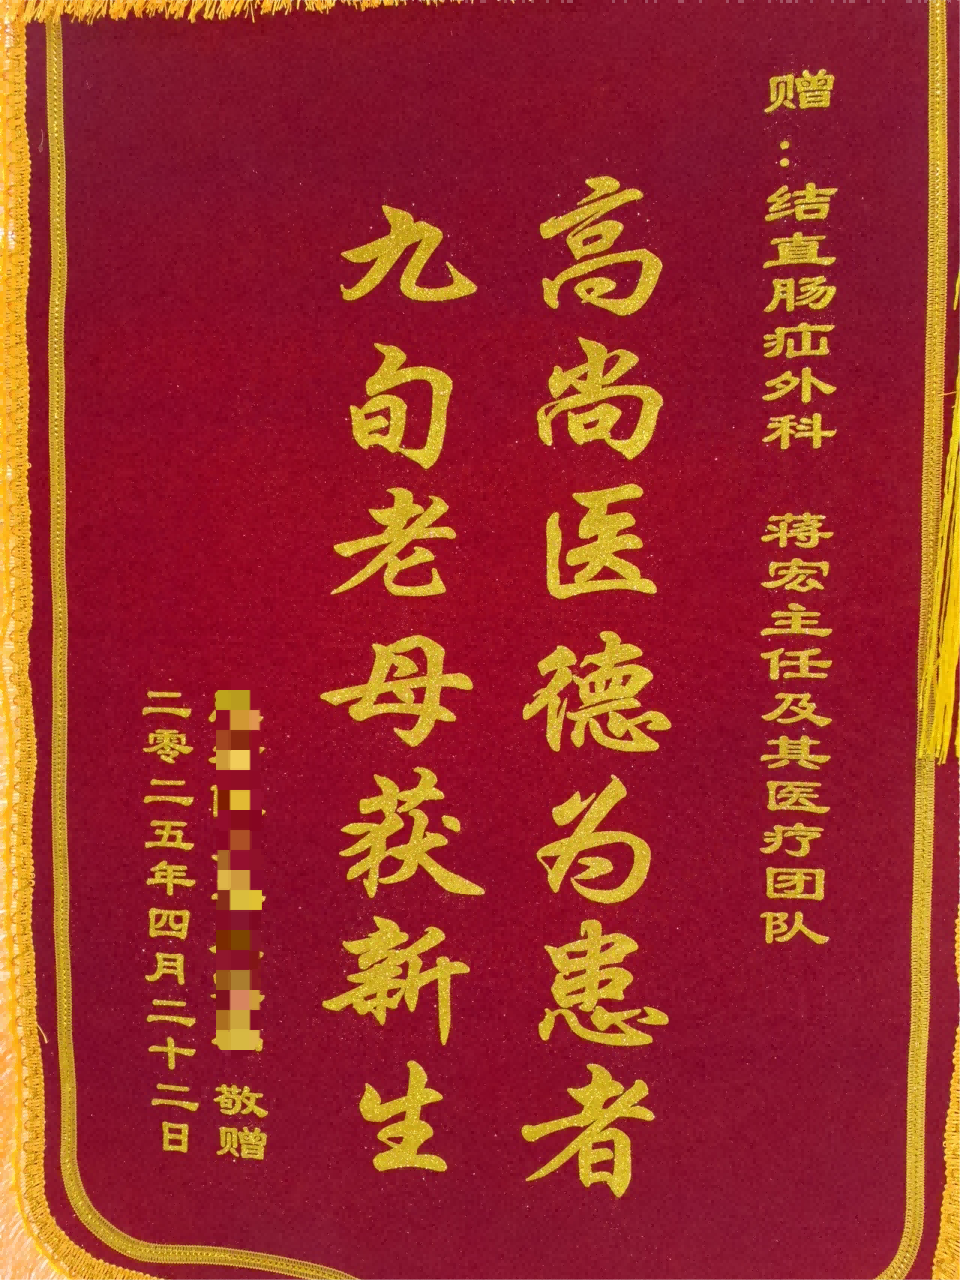 赠：结直肠疝外科 蒋宏主任及其医疗团队
高尚医德为患者
九旬老母获新生
敬赠
二零二五年四月二十二日